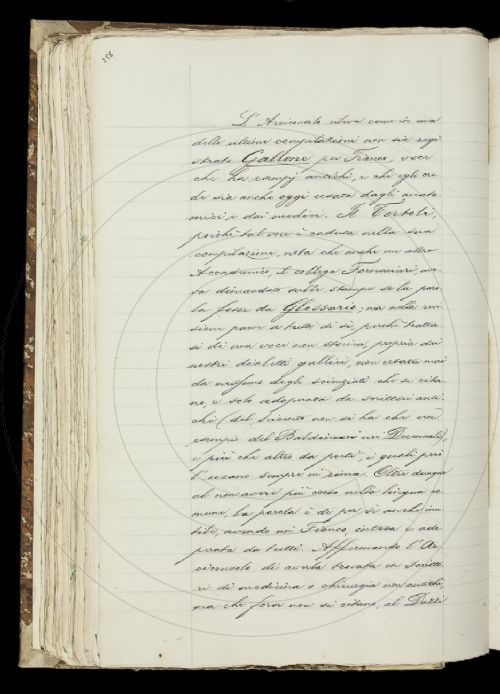 256
L'Arciconsolo rileva come in una
delle ultime compilazioni non sia regi
strato Gallone per Fianco, voce
che ha esempj antichi, e che egli cre
de sia anche oggi usata dagli anato
mici e dai medici. Il Tortoli,
poichè tal voce è caduta nella sua
compilazione, nota che anche un altro
Accademico, il collega Fornaciari, ave
va domandato sulle stampe se la paro
la fosse da Glossario; ma alla revi
sione parve a tutti di sì, perchè tratta
si di una voce non storica, propria dei
nostri dialetti gallici, non usata mai
da nessuno degli scienziati che si cita
no, e solo adoperata da scrittori anti
chi (del Seicento non si ha che un
esempio del Baldinucci nei Decennali),
e più che altro da poeti, i quali però
l'usano sempre in rima. Oltre dunque
al non avere più corso nella lingua co
mune, la parola è di per sè anche inu
tile, avendo noi Fianco, intesa e ado
perata da tutti. Affermando l'Ar
ciconsolo di averla trovata in scritto
ri di medicina e chirurgia non antichi,
ma che forse non si citano, il Dazzi